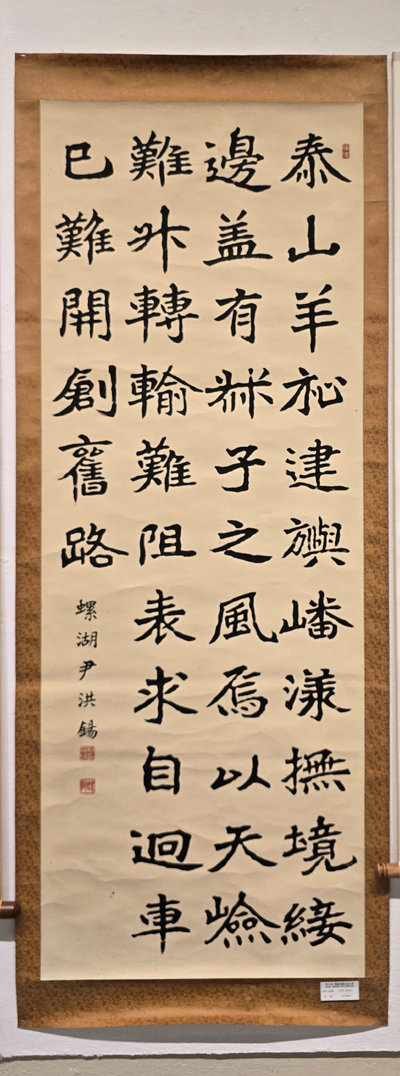 泰山羊祉建旟嶓漾撫境綏
邊盖有叔子之風焉以天嶮
難升轉輸難阻表求自迴車
已難開創舊路
螺湖尹洪錫